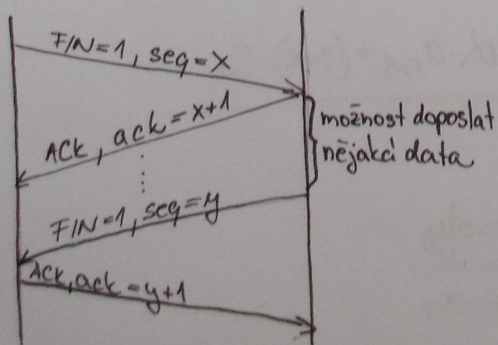 FIN=1, seq=x
ACK, ack=x+1
možnost doposlat
nějaká data
FIN=1, seq=y
ACK, ack=y+1